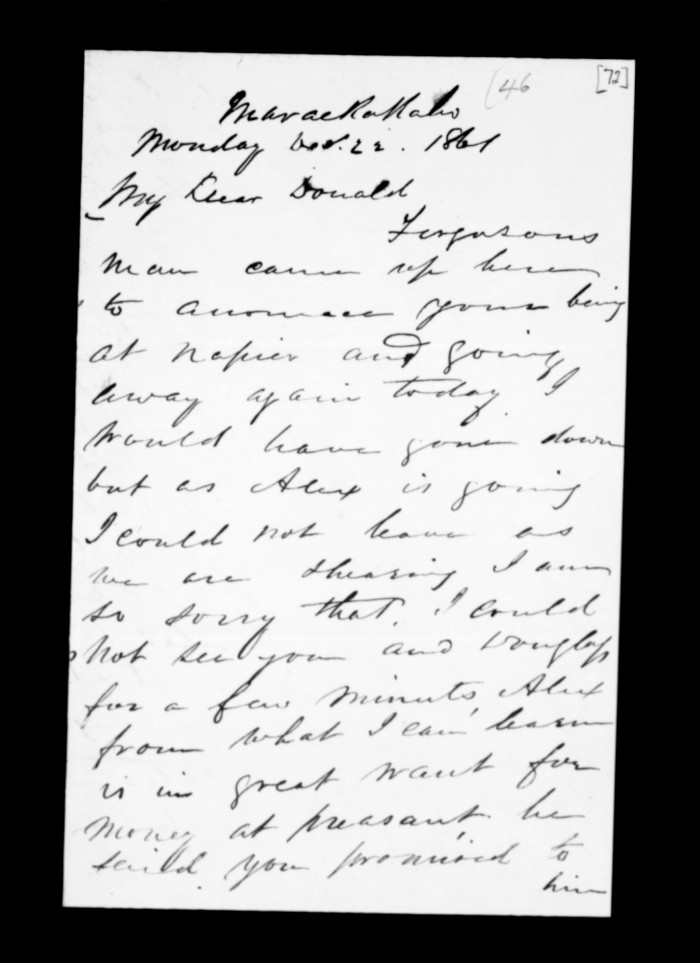 (46
[72]
Maraekakaho
Monday 22. 1861
My Dear Donald
Fergusons
man came up here
to anounce your being
at Napier and going
away again today I
would have gone down
but as Alex is going
I could not leave as
we are shearing I am
so sorry that. I could
not see you and Douglass
for a few minuts, Alex
from what I can learn
is in great want for
money at preasant. he
said you promised to
him